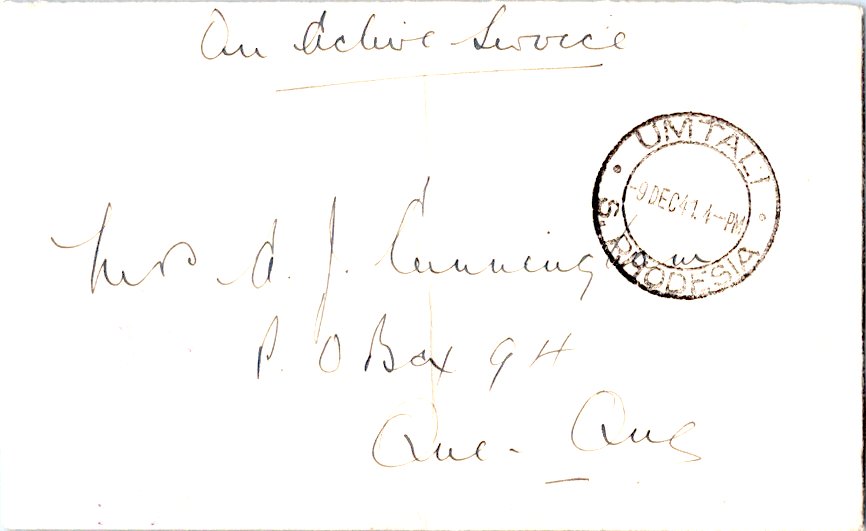 On Active Service
UMTALI
-9 DEC 41. 4-PM
S. RHODESIA
Mrs A. J. Cunningham
P. O Box 94
Que-Que